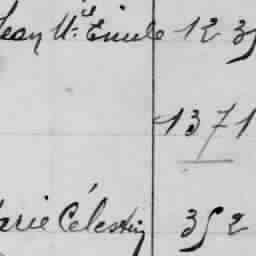 Jean M.ie Emile 12 35
1371
arie Célestin 352